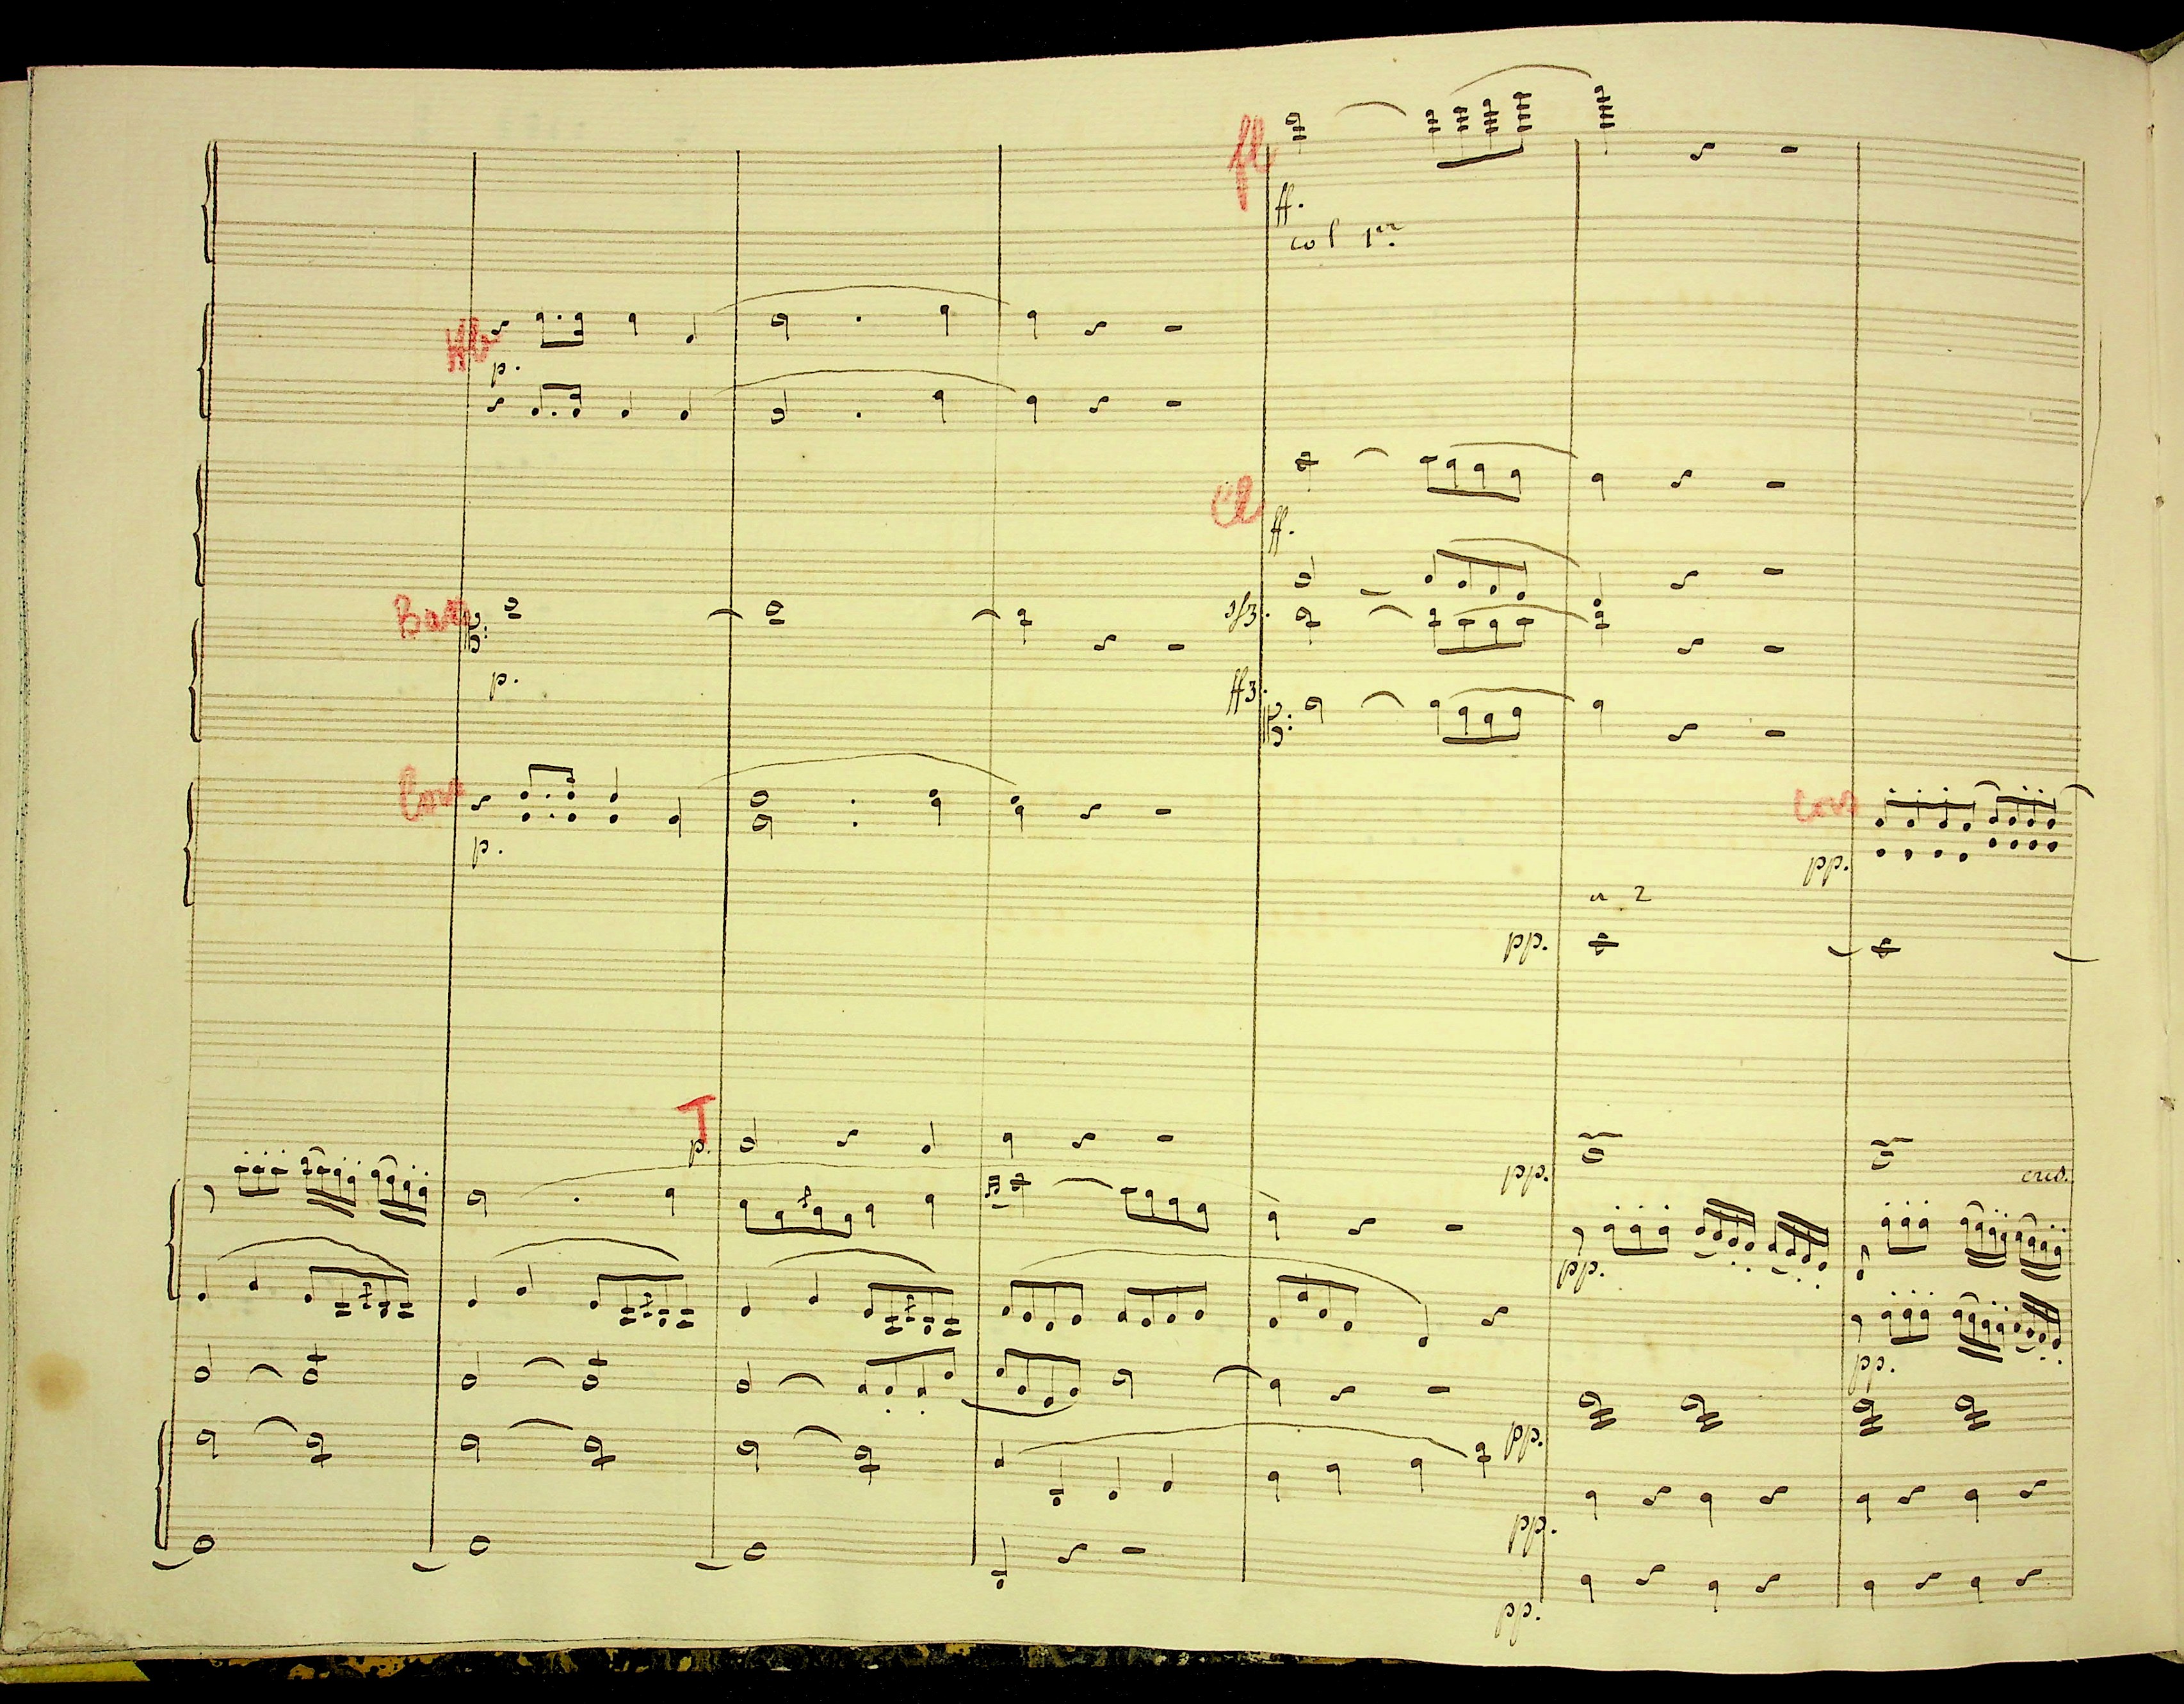 fl
ff.
col 1er
Hb
p.
Cl
ff.
Bass
sf3.
p.
ff3.
Cors
p.
Cors
pp.
a 2
pp.
T
p.
pp.
cres.
pp.
pp.
pp.
pp.
pp.